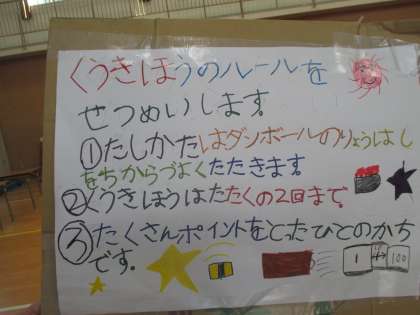 くうきほうのルールを
せつめいします。
①たしかたはダンボールのりょうはし
をちからづよくたたきます。
②くうきほうはたたくの2回まで。
③たくさんポイントをとったひとのかち
です。
1 100